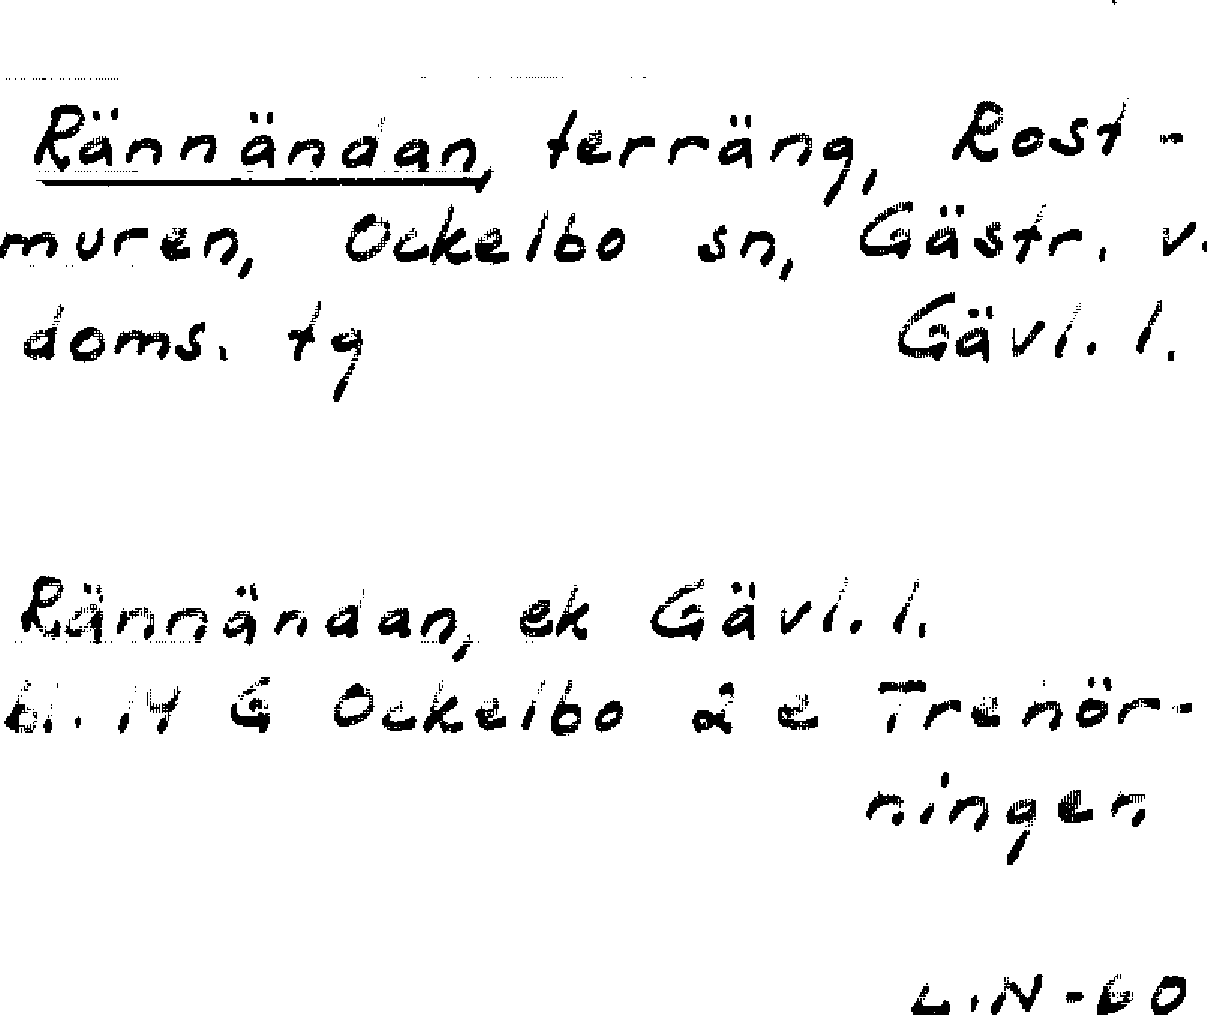 Rännändan, terräng, Rost-
muren, Ockelbo sn, Gästr. v.
doms. tg Gävl. l.
Rännändan, ek Gävl. l.
bl. 14 G Ockelbo 2 e Trenör-
ningen
L.N-60